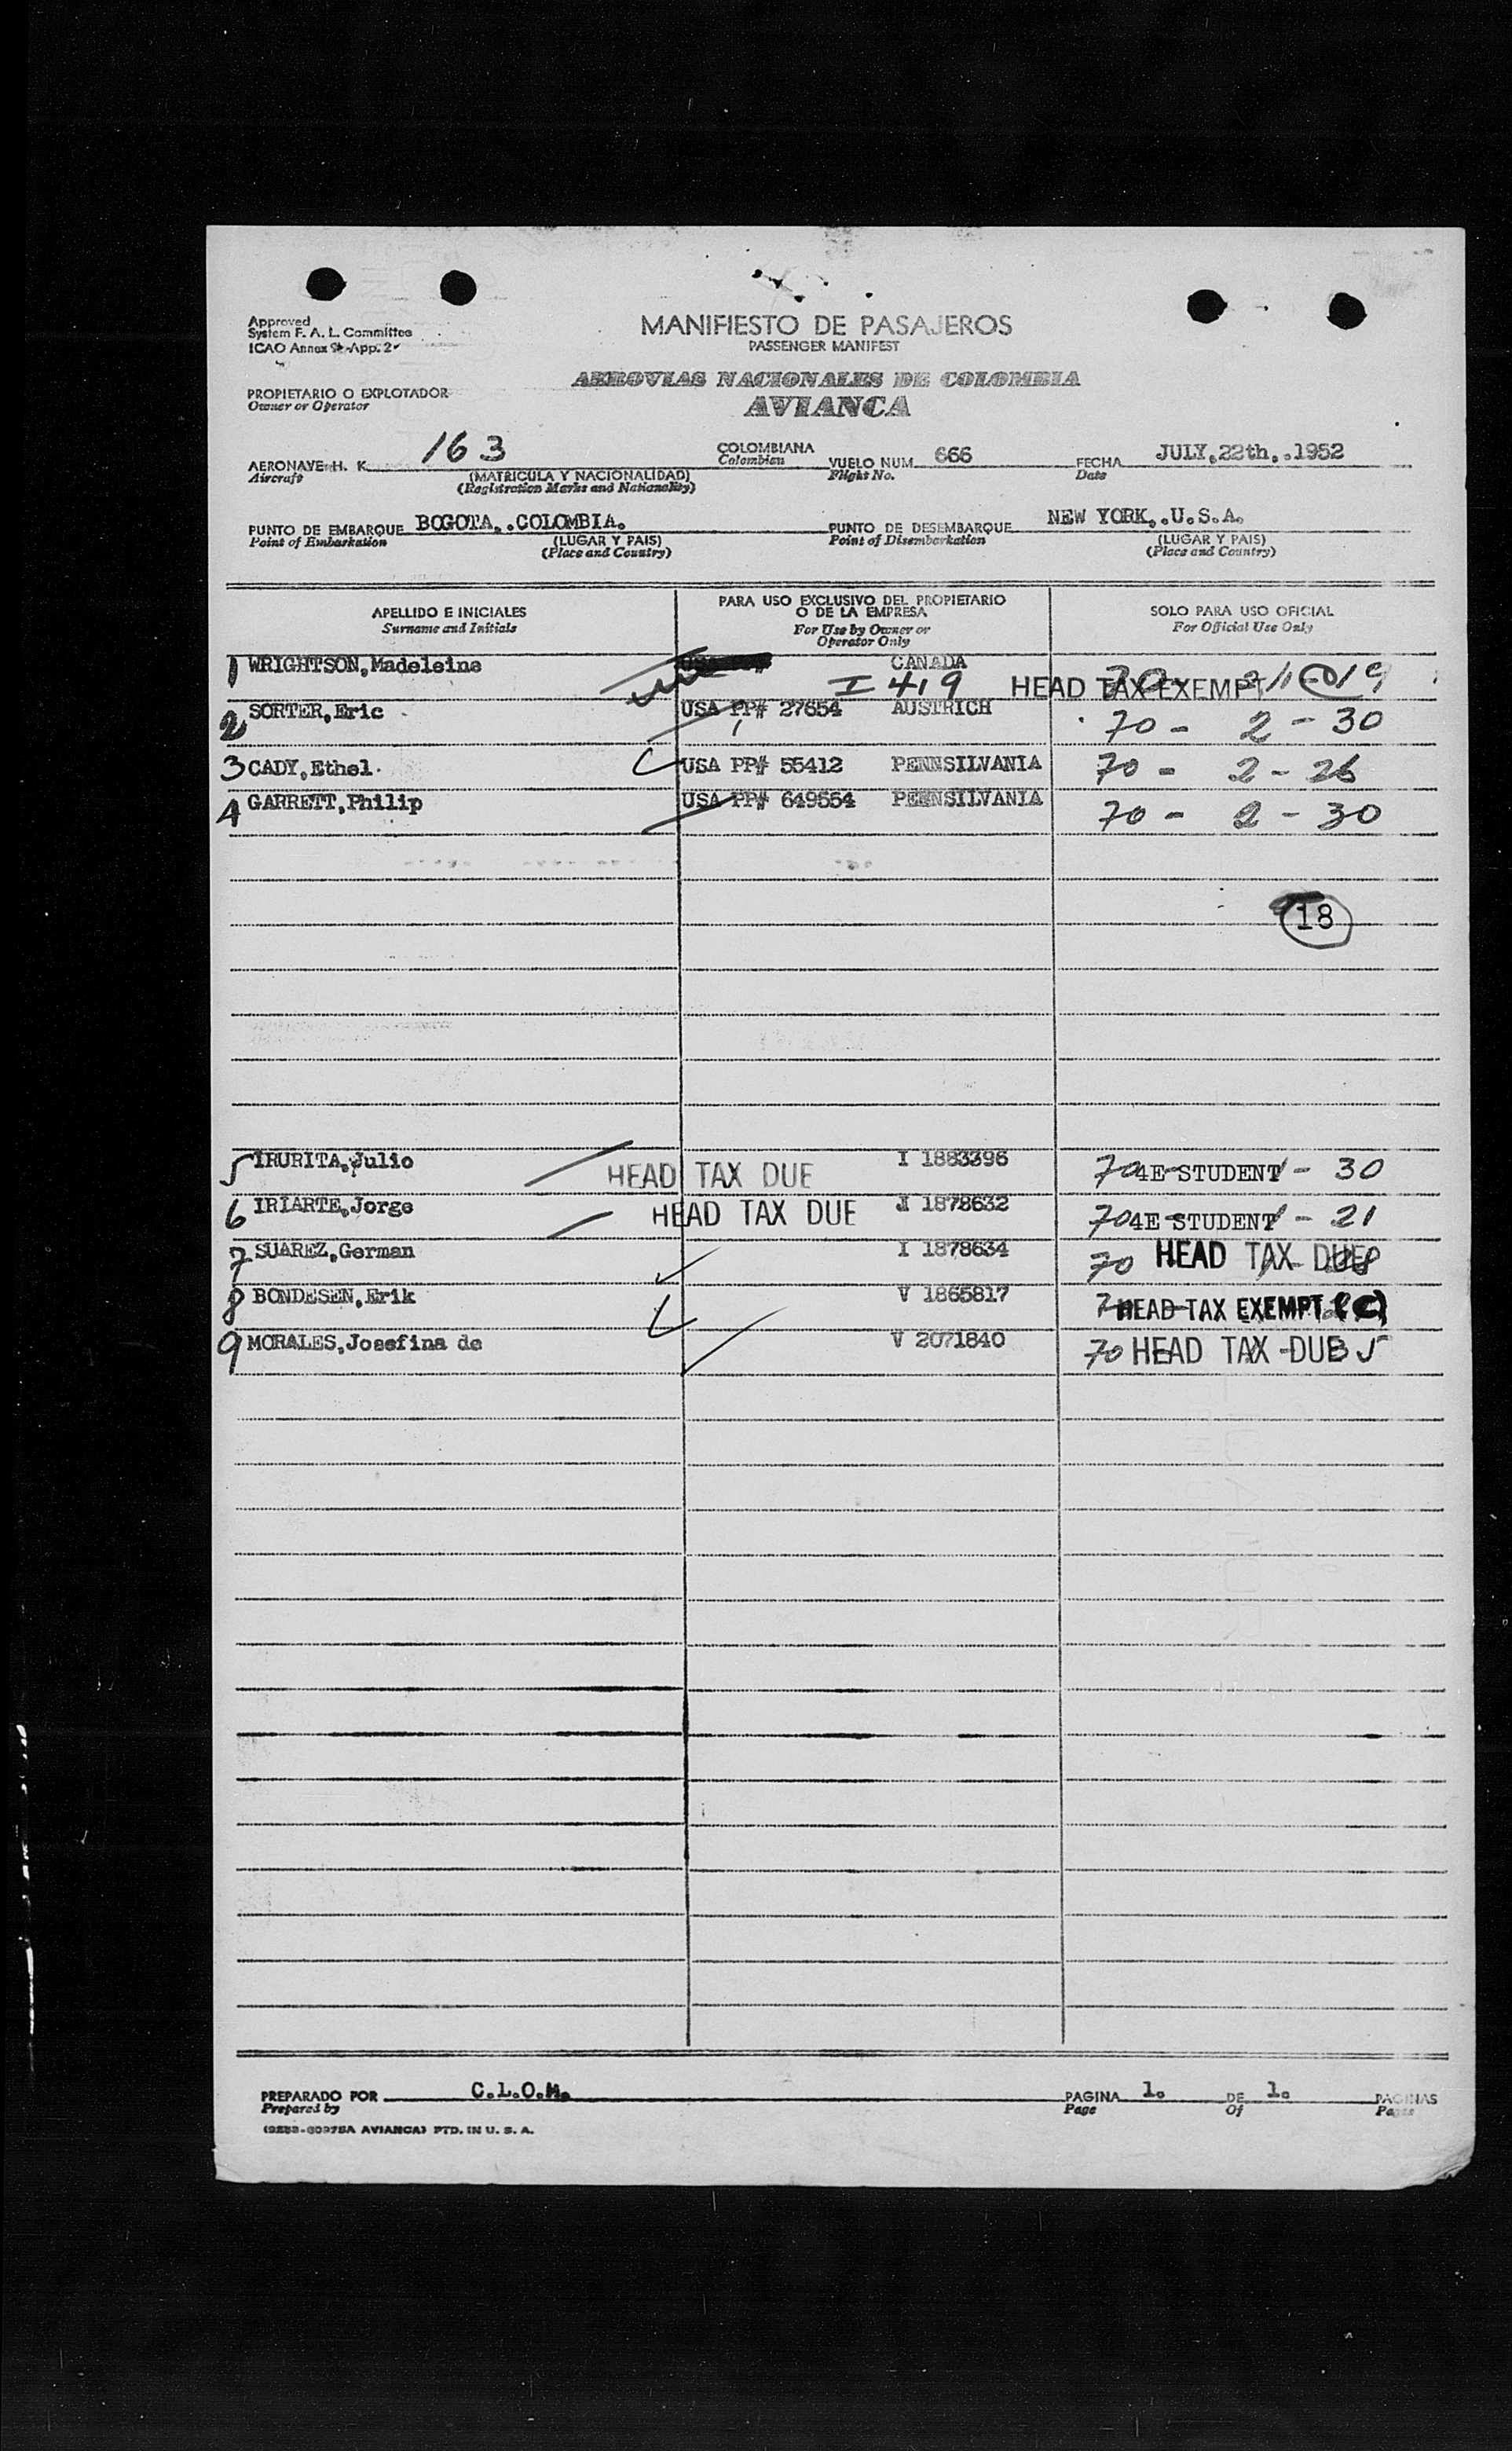 Approved
System F. A. L. Committee
ICAO Annex 9-App. 2
MANIFIESTO DE PASAJEROS
PASSENGER MANIFEST
AEROVIAS NACIONALES DE COLOMBIA
AVIANCA
PROPIETARIO O EXPLOTADOR
Owner or Operator
AERONAVE H. K. 163 COLOMBIANA VUELO NUM. 666 FECHA JULY,22th,.1952
Aircraft (MATRICULA Y NACIONALIDAD) Colombian Flight No. Date
(Registration Marks and Nationality)
PUNTO DE EMBARQUE BOGOTA,.COLOMBIA. PUNTO DE DESEMBARQUE NEW YORK,.U.S.A.
Point of Embarkation (LUGAR Y PAIS) Point of Disembarkation (LUGAR Y PAIS)
(Place and Country) (Place and Country)
APELLIDO E INICIALES PARA USO EXCLUSIVO DEL PROPIETARIO O DE LA EMPRESA SOLO PARA USO OFICIAL
Surname and Initials For Use by Owner or Operator Only For Official Use Only
1 WRIGHTSON,Madeleine CANADA
I 419 HEAD TAX EXEMPT 70 19
2 SORTER,Eric USA PP# 27654 AUSTRICH 70 - 2 - 30
3 CADY,Ethel USA PP# 55412 PENNSILVANIA 70 - 2 - 26
4 GARRETT,Philip USA PP# 649554 PENNSILVANIA 70 - 2 - 30
18
5 IRURITA,Julio HEAD TAX DUE I 1883396 70 4E STUDENT - 30
6 IRIARTE,Jorge HEAD TAX DUE I 1878632 70 4E STUDENT - 21
7 SUAREZ,German I 1878634 70 HEAD TAX DUE
8 BONDESEN,Erik V 1865817 HEAD TAX EXEMPT (C)
9 MORALES,Josefina de V 2071840 70 HEAD TAX DUE
PREPARADO POR C.L.O.M. PAGINA 1. DE 1. PAGINAS
Prepared by Page Of Pages
AVIANCA) PTD. IN U. S. A.